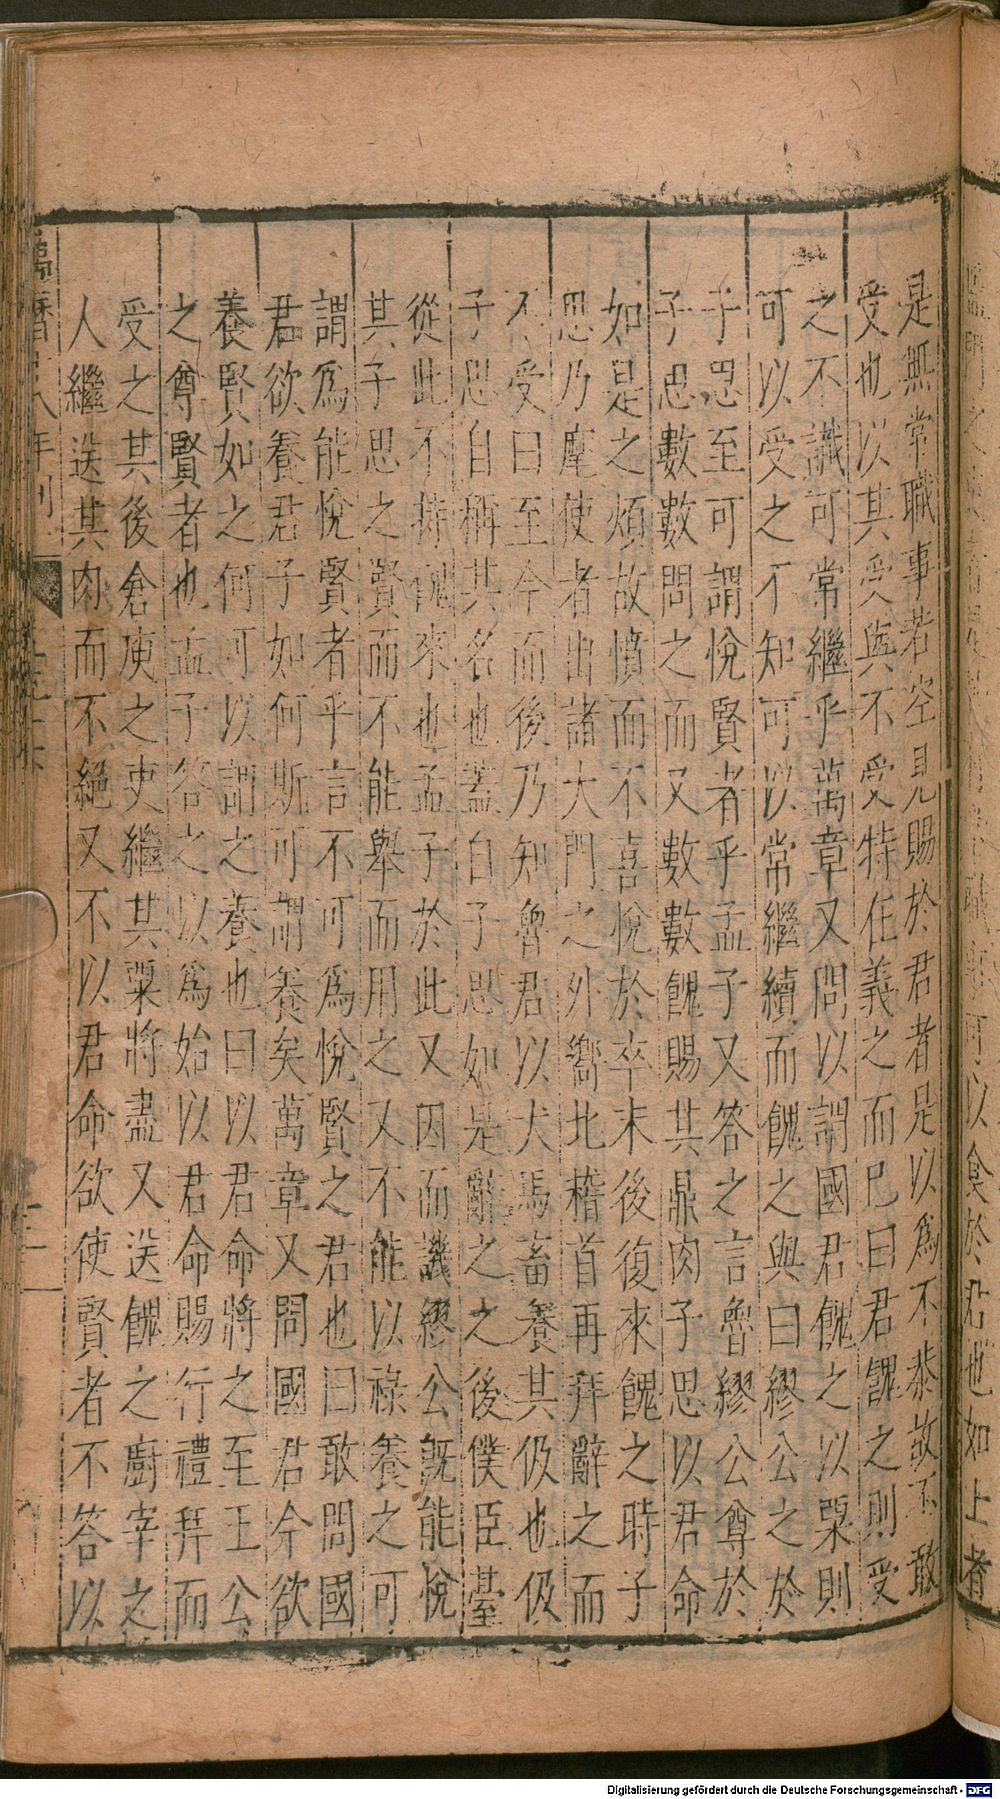 是無常職事若空見賜於君者是以爲不恭故不敢
受也以其受與不受特在義之而巳曰君餽之則受
之不識可常繼乎萬章又問以謂國君餽之以粟則
可以受之不知可以常繼續而餽之與曰繆公之於
子思至可謂悅賢者乎孟子又答之言魯繆公尊於
子思數數問之而又數數餽賜其鼎肉子思以君命
如是之煩故憤而不喜悅於卒末後復來餽之時子
思乃麾使者出諸大門之外嚮北稽首再拜辭之而
不受曰至今而後乃知魯君以犬馬畜養其伋也伋
子思自稱其名也蓋自子思如是辭之之後僕臣臺
從此不持餽來也孟子於此又因而譏繆公旣能悅
其子思之賢而不能舉而用之又不能以祿養之可
謂爲能悅賢者乎言不可爲悅賢之君也曰敢問國
君欲養君子如何斯可謂養矣萬章又問國君今欲
養賢如之何可以謂之養也曰以君命將之至王公
之尊賢者也孟子答之以爲始以君命賜行禮拜而
受之其後倉庾之吏繼其粟將盡又送餽之廚宰之
人繼送其肉而不絕又不以君命欲使賢者不答以
八年刊
可以食於君也如上者
Digitalisierung gefördert durch die Deutsche Forschungsgemeinschaft - DFG